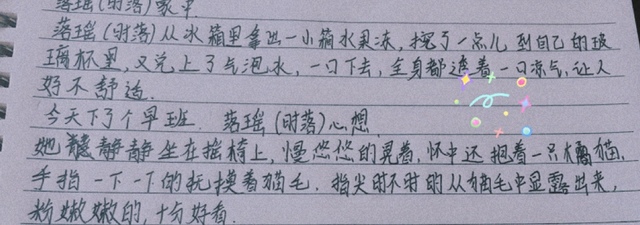 落瑶(时落)家中
落瑶(时落)从冰箱里拿出一小箱水果冻,挖了一点儿到自己的玻
璃杯里,又兑上了气泡水,一口下去,全身都透着一口凉气,让人
好不舒适.
今天下了个早班.落瑶(时落)心想.
她静静坐在摇椅上,慢悠悠的晃着,怀中还抱着一只布偶猫,
手指一下一下的抚摸着猫毛.指尖时不时的从猫毛中显露出来,
粉嫩嫩的,十分好看.